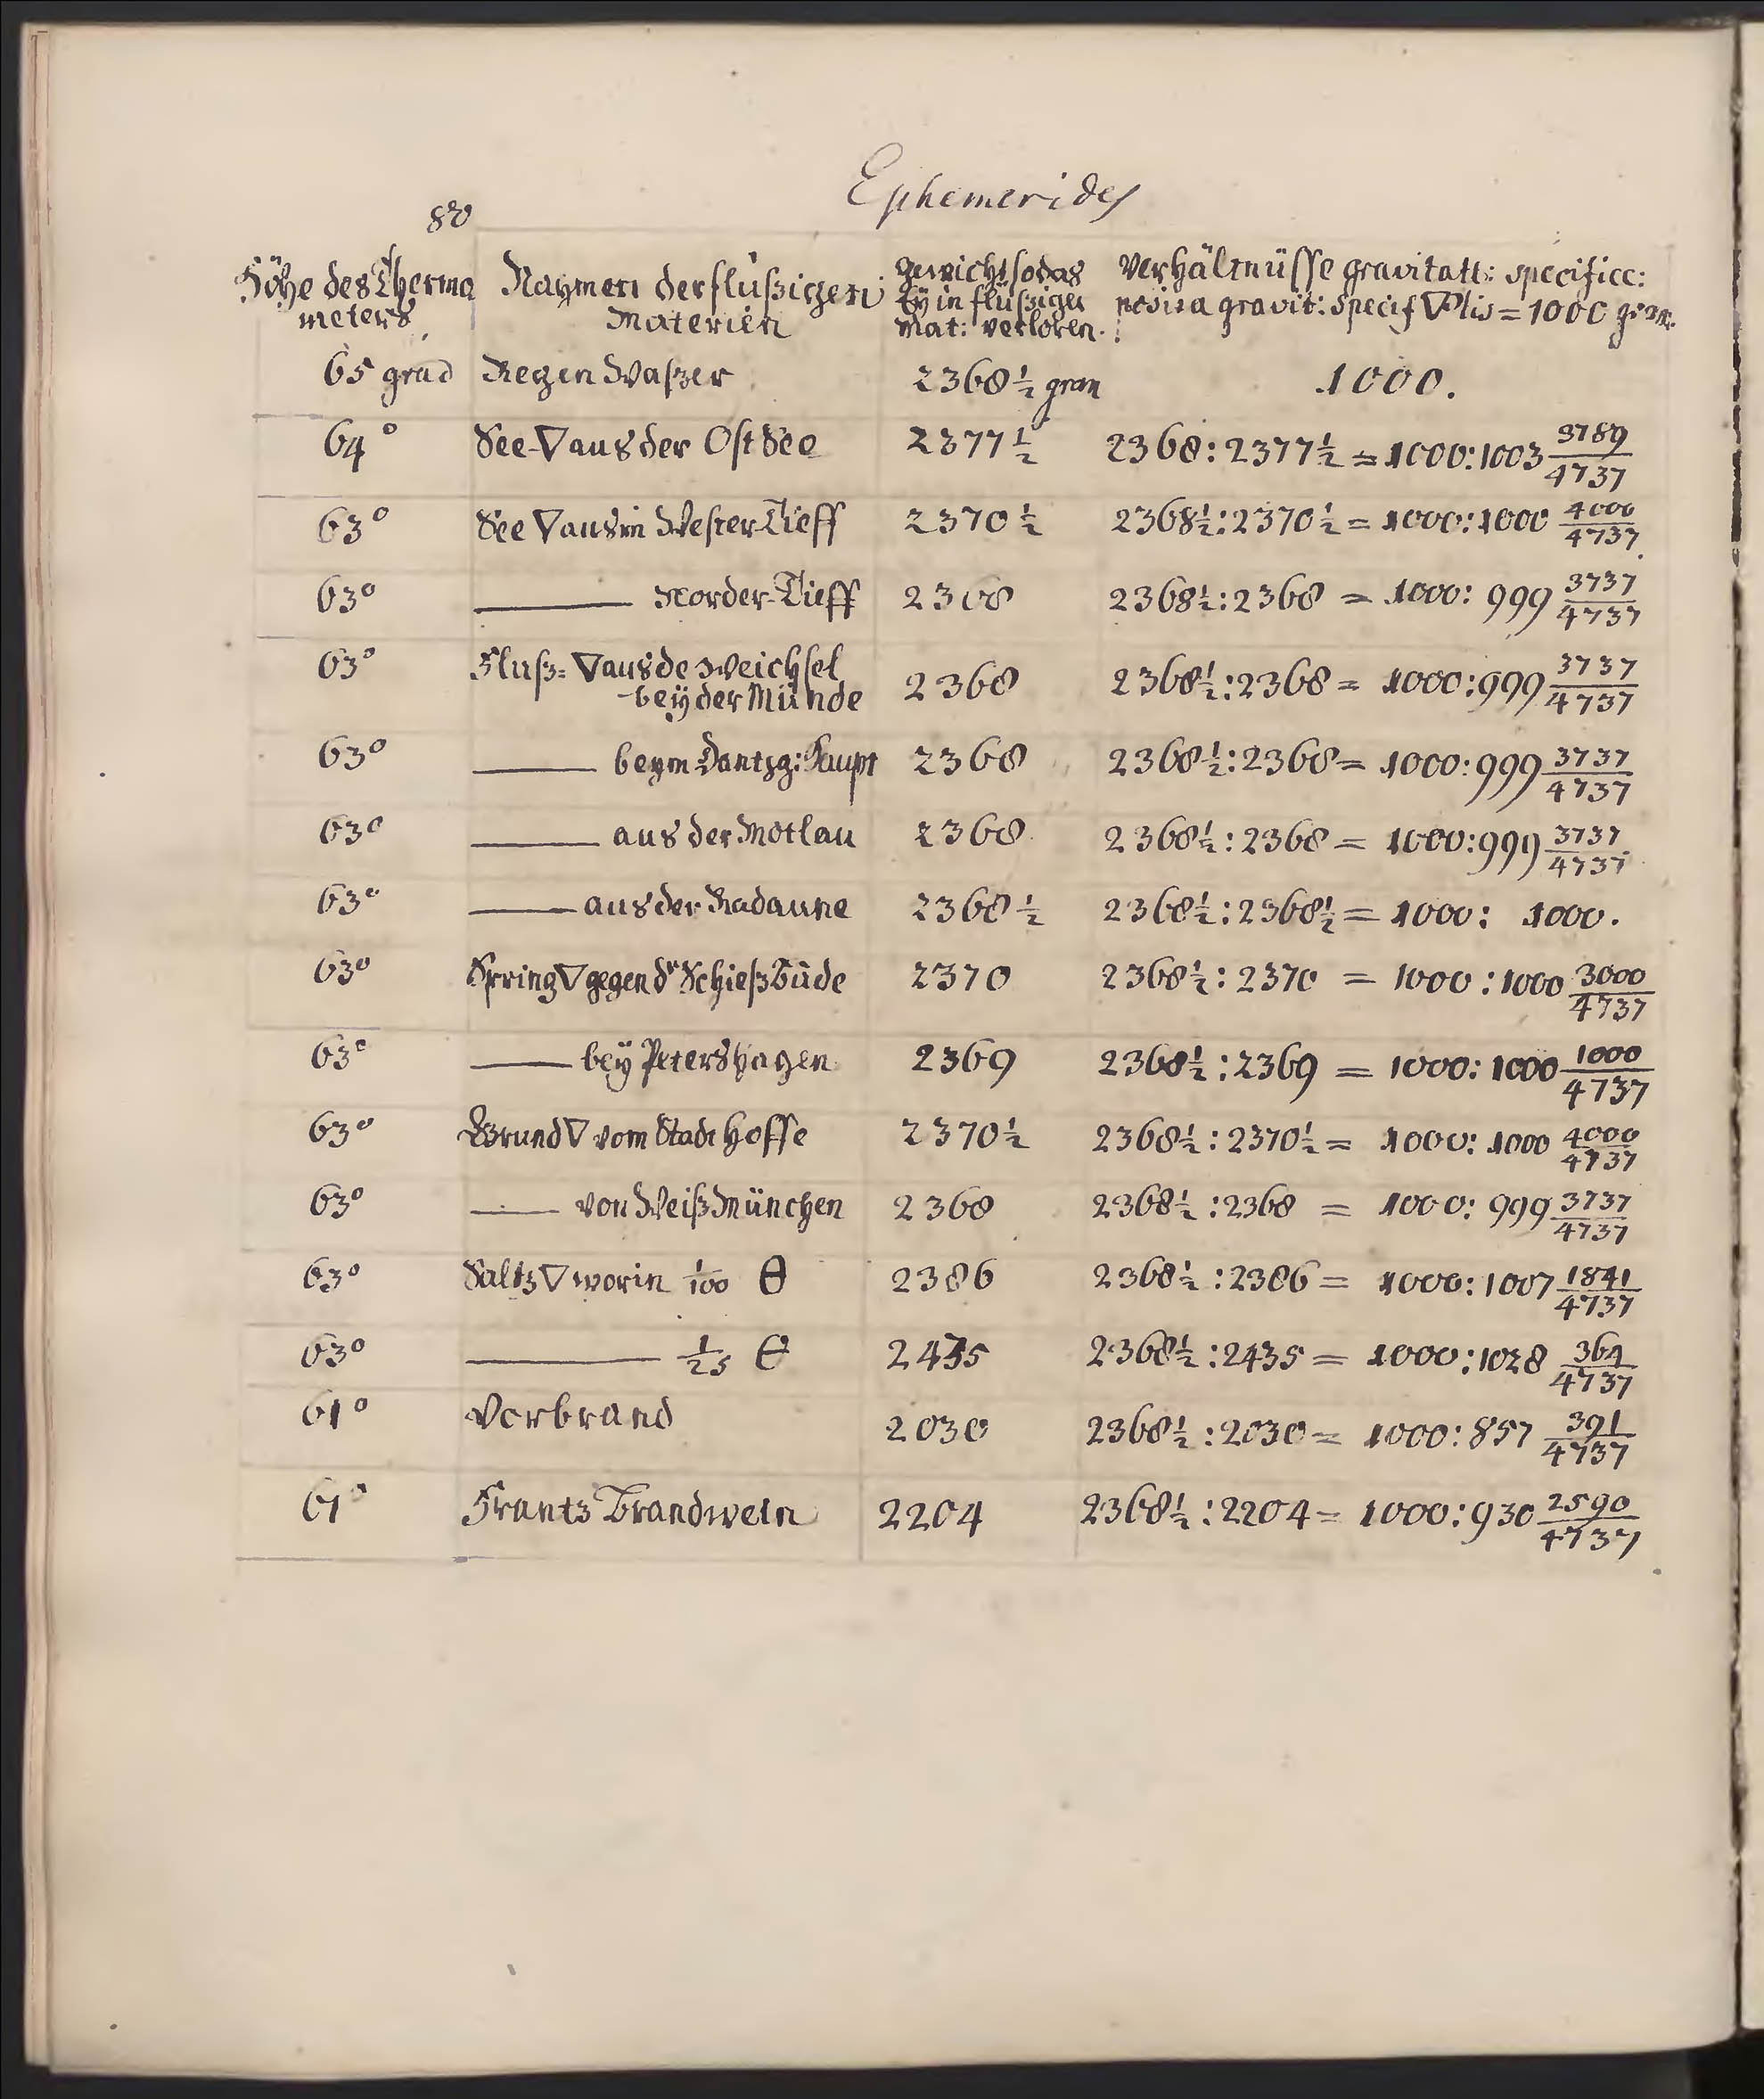 Ephemerides
80
Höhe des Thermo
meters
Nahmen der flüßigen
Materien
gewicht so das
Ey in flüßiger
Mat: verlohren.
Verhältnüsse gravitatt: specificc:
posita gravit: Specif ▽ Plis = 1000 gran.
65 grad Regen Waßer 2368 1/2 gran 1000.
64° See-▽ aus der Ost See 2377 1/2 2368:2377 1/2 = 1000:1003 3789/4737
63° See ▽ aus'm Wester-Tieff 2370 1/2 2368 1/2:2370 1/2 = 1000:1000 4000/4737
63° ——— Norder-Tieff 2368 2368 1/2:2368 = 1000: 999 3737/4737
63° Fluß=▽ aus de Weichsel
beÿ der Münde 2368 2368 1/2:2368 = 1000:999 3737/4737
63° ——— beym Dantzg: Haupt 2368 2368 1/2:2368 = 1000:999 3737/4737
63° ——— aus der Motlau 2368 2368 1/2:2368 = 1000:999 3737/4737
63° ——— aus der Radaune 2368 1/2 2368 1/2:2368 1/2 = 1000: 1000.
63° Spring ▽ gegen dr Schieß Bude 2370 2368 1/2:2370 = 1000:1000 3000/4737
63° ——— beÿ Petershagen 2369 2368 1/2:2369 = 1000:1000 1000/4737
63° Brund ▽ vom Stadt Hoffe 2370 1/2 2368 1/2:2370 1/2 = 1000:1000 4000/4737
63° ——— von Weiß München 2368 2368 1/2:2368 = 1000: 999 3737/4737
63° Saltz ▽ worin 1/100 θ 2386 2368 1/2:2386 = 1000:1007 1841/4737
63° ——— 1/25 θ 2435 2368 1/2:2435 = 1000:1028 364/4737
61° Vorbrand 2030 2368 1/2:2030 = 1000:857 391/4737
61° Frantz Brandwein 2204 2368 1/2:2204 = 1000:930 2590/4737